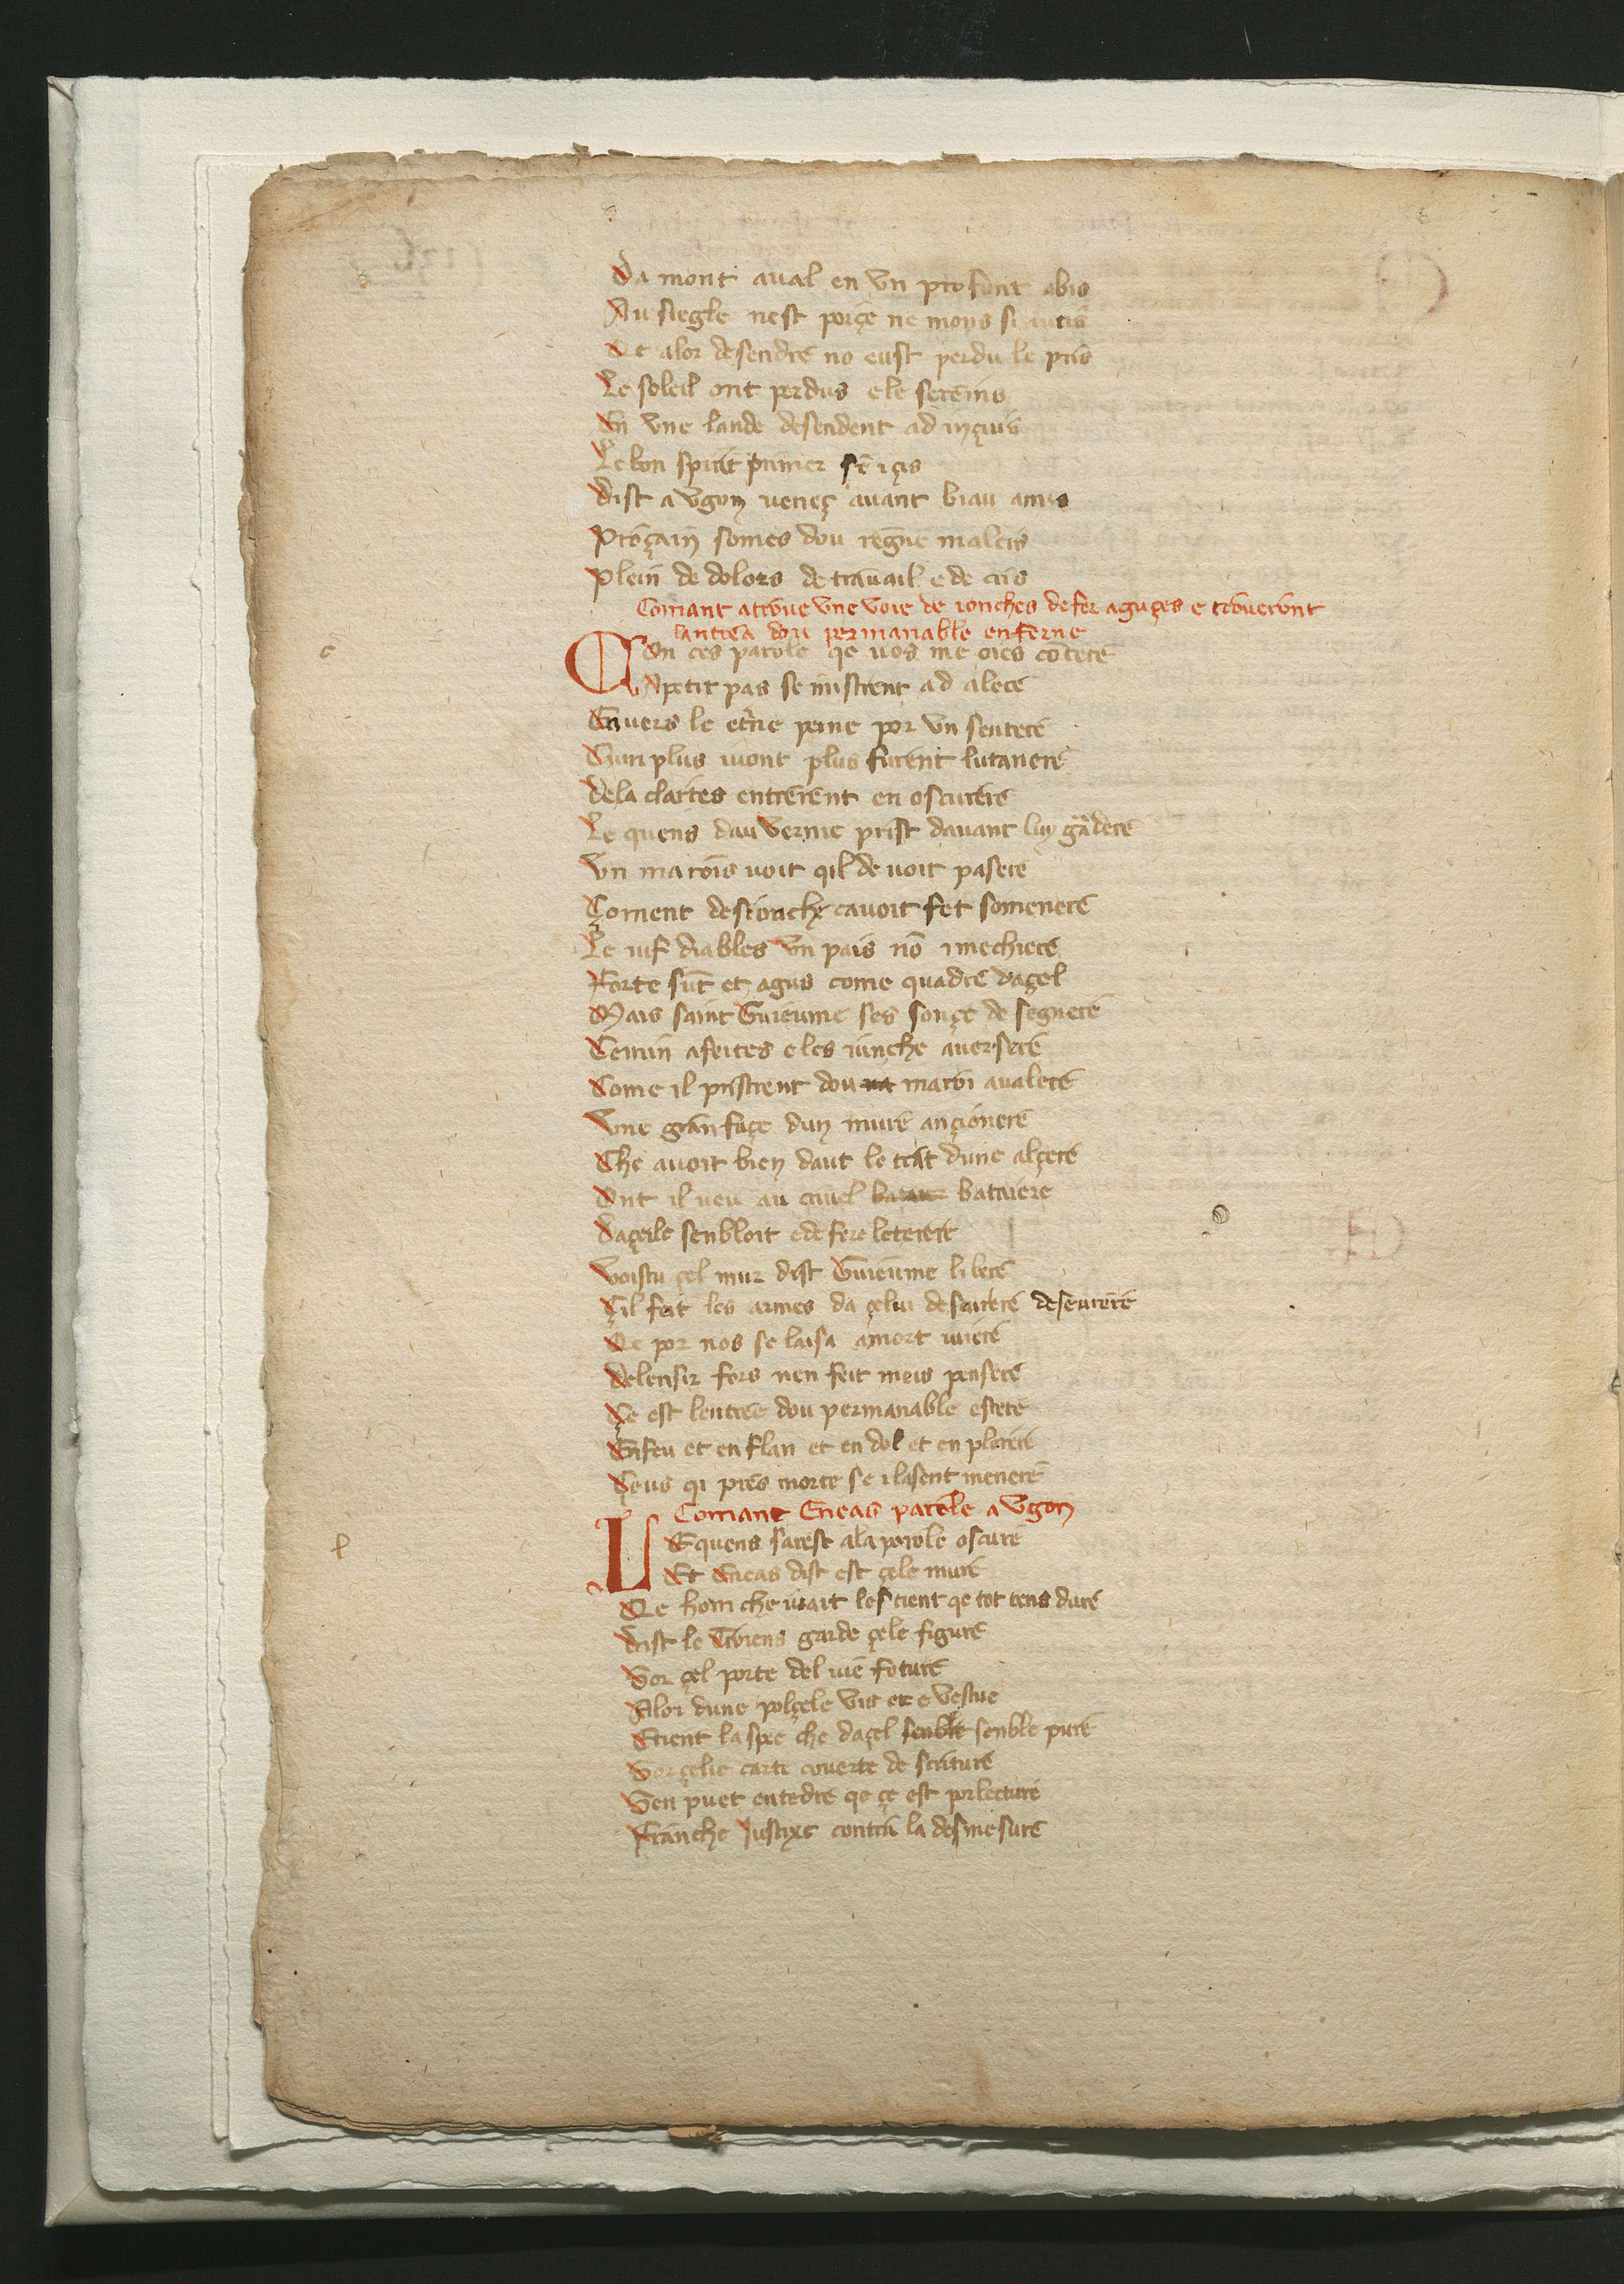 Da mont aual en vn profont abis
Au siegle nest porçe ne mons si autis
Qe alor desendre no eust perdu le pris
Le soleil ont perdus e le serenins
En vne lande desendent ad
Le bon spirit primer
Dist a vgon uenes auant biau amis
Proçain somes dou regne maleis
Plein de dolors de trauail e de cris
Comant atroue vne voie de ronches de fer aguçes e trouerunt
lantrea dou permanable enferne
c
An ces parole qe uos me oies cōtere
A petit pas se mistrent ad alere
Enuers le et'ne peine por vn sentere
Cun plus uiont plus furent lutanere
Dela clartes entrerent en oscurere
Le quens dauuernie prist dauant luy gādere
Vn marois uoit qil de uoit pasere
Çoment de stronche cauoit fet somenere
Le diables vn pais nō
Forte sūt et agus come quadre daçel
Mais saint Guieume ses sonçe de segnere
Cemin afeites e les iunche auersere
Come il pristrent dou marōi aualere
Vne gran façe dun mure ançionere
Che auoit bien daut le trat dune alçere
Ont il ueu au criuel bataiere
Daçeile senbloit e de fere leterere
Voistu çel mur dist Guieume li bere
Çil feit les armes da çelui desarere deseurere
Qe por nos se laisa amort uiere
De lensir fors nen feit meis pensere
Çe est lentree dou permanable estere
En feu et en flan et en dol et en plorere
Çeus qi pres morte se i lasent menere
Comant Eneas parole a vgon
l
LE quens sarest ala parole oscure
Et Eneas dist est çele mure
Qe hom che uait les tient qe tot tens dure
Dist le Troiens garde çele figure
Sor çel porte del uie foture
Alor dune polçele vit et e vestue
E tient la spee che daçel senble senble pure
Sor çelie carte couerte de scriture
Sen puet entedre qe çe est por lecture
Franche Justixe contra la desmesure